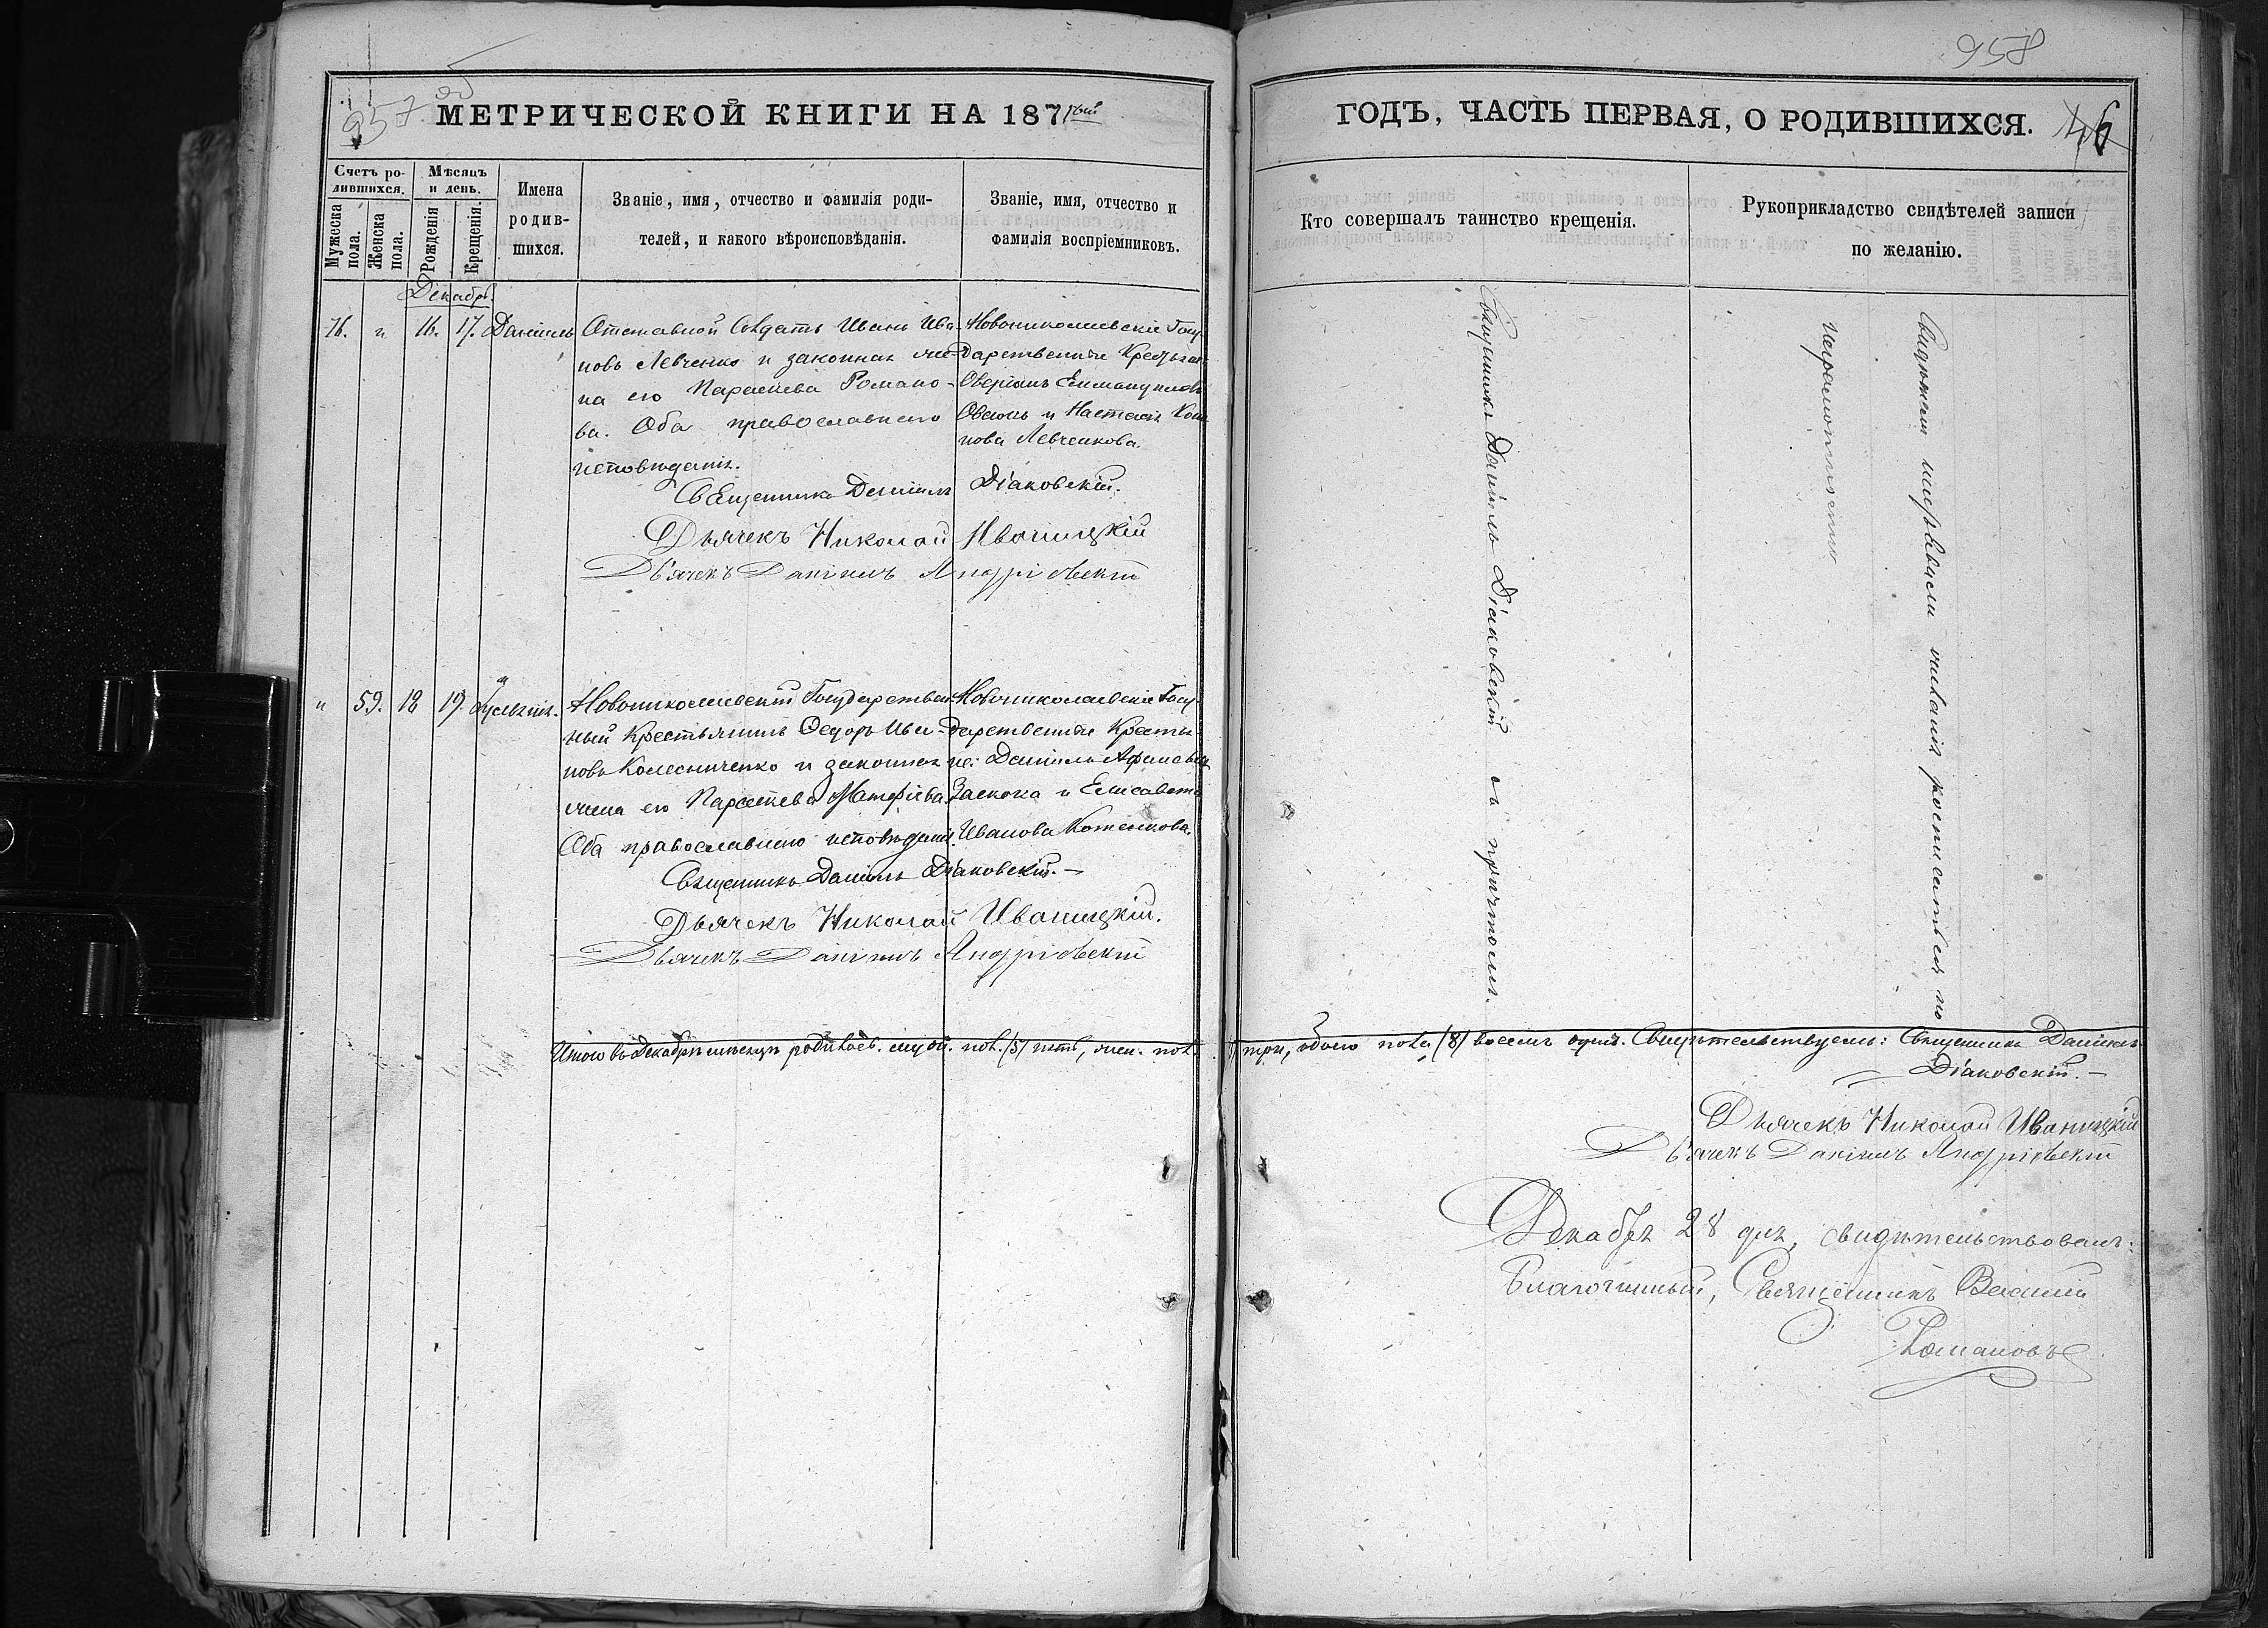 957
МЕТРИЧЕСКОЙ КНИГИ НА 187
Счетъ ро-
дившихся.
Мужеска пола.
Женска пола.
Мѣсяцъ
и день.
Рожденія
Крещенія.
Имена
родив-
шихся.
Званіе, имя, отчество и фамилія роди-
телей, и какого вѣроисповѣданія.
Званіе, имя, отчество и
фамилія воспріемниковъ.
Декабрь
76. " 16. 17. Даніилъ
Отставной Солдатъ Иванъ Ива-
новъ Левченко и законная же-
на его Параскева Романо-
ва. Оба православнаго
исповѣданія.
Новониколаевскіе Госу-
дарственные Крестьяне
Аверіанъ Еммануиловъ
и Настасія
нова Левченкова.
Священникъ Даніилъ Діаковскій.
Дьячекъ Николай Иваницкій
Дьячекъ Даніилъ Андріевскій
" 59. 18 19.
Новониколаевскій Государствен-
ный Крестьянинъ Ѳедоръ Ива-
новъ Колесниченко и законная
жена его Параскева Матфіева.
Оба православнаго исповѣданія.
Новониколаевскіе Госу-
дарственные Крестья-
не: Даніилъ
и Елисавета
Иванова
Священникъ Даніилъ Діаковскій.—
Дьячекъ Николай Иваницкій.
Дьячекъ Даніилъ Андріевскій
Итого въ Декабрѣ мѣсяцѣ родилось. муж. пол. (5) пять, жен. пол.
958
ГОДЪ, ЧАСТЬ ПЕРВАЯ, О РОДИВШИХСЯ.
Кто совершалъ таинство крещенія.
Рукоприкладство свидѣтелей записи
по желанію.
Священникъ Даніилъ Діаковскій съ причтомъ.
Свидѣтели не росписаться по
неграмотности
три, обоего пола (8) восемь душъ. Свидѣтельствуемъ: Священникъ Даніилъ
Діаковскій.—
Дьячекъ Николай Иваницкій
Дьячекъ Даніилъ Андріевскій
Декабря 28 дня, свидѣтельствовалъ:
Благочинный, Священникъ Василій
Романовъ